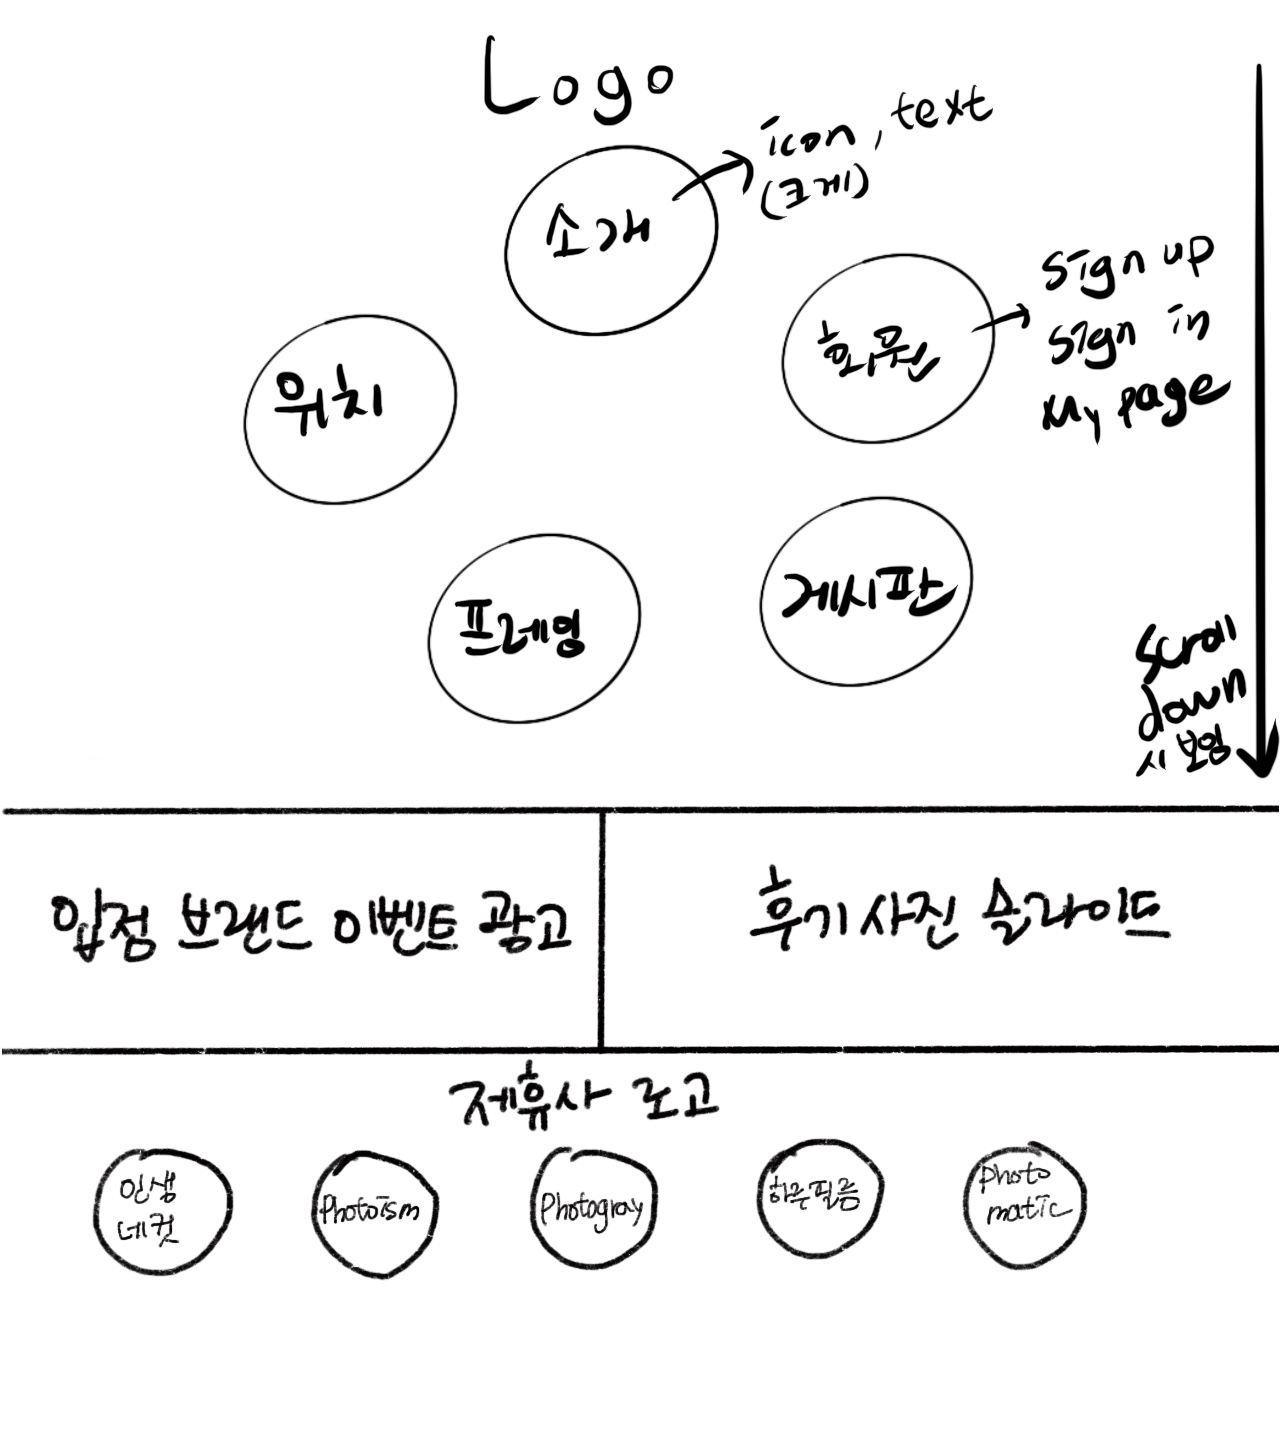 Logo
icon, text
(크게)
소개
sign up
sign in
My page
회원
위치
게시판
프레임
scroll
down
시 보임
입점 브랜드 이벤트 광고
후기사진 슬라이드
제휴사 로고
인생
네컷
Photoism
Photogray
하루필름
photo
matic